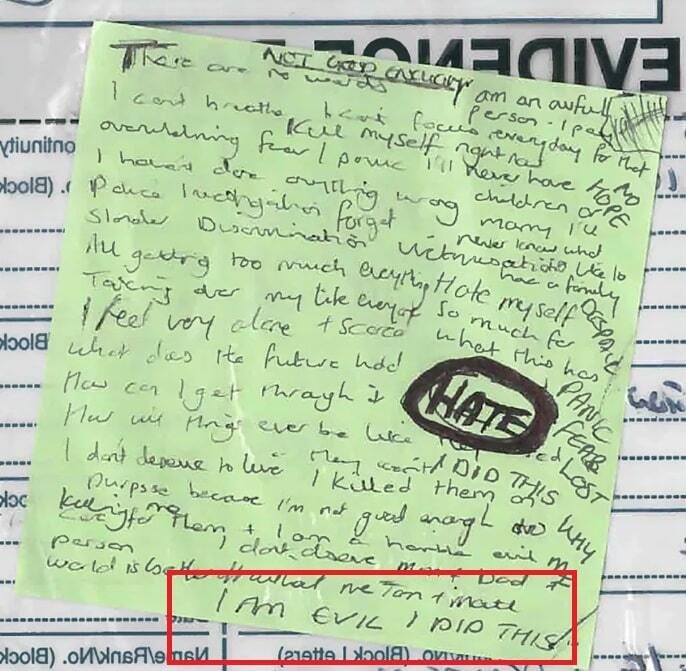 EVIDENCE
NOT GOOD ENOUGH
There are no words
I am an awful person - I pay everyday for that
I cant breathe I cant focus
Kill myself right now
overwhelming fear I panic I'll never have children or marry I'll never know what
NO HOPE
I haven't done anything wrong
its like to have a family
Police Investigation forget
Slander Discrimination Victimisation
DESPAIR
All getting too much everything Hate myself so much for what this has
Taking over my life everyone
I feel very alone + scared
PANIC
What does the future hold
HATE
FEAR
How can I get through it
LOST
How will things ever be like
I don't deserve to live
I DID THIS
WHY ME
I killed them on purpose because I'm not good enough to care for them + I am a horrible evil person
killing me
I don't deserve mum + Dad
world is better off without me
I AM EVIL I DID THIS
Continuity
No. (Block
(Block
Block
Name/Rank/No. (Block Letters)